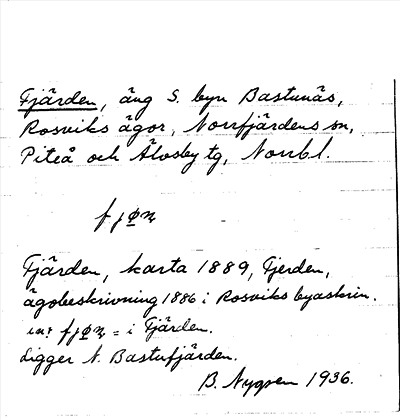 Fjärden, äng S. byn Bastunäs,
Rosviks ägor, Norrfjärdens sn,
Piteå och Älvsby tg, Norrbl.
Fjärden, karta 1889, Fjerden,
ägobeskrivning 1886 i Rosviks byaskrin.
= i Fjärden.
Ligger N. Bastufjärden.
B. Nygren 1936.